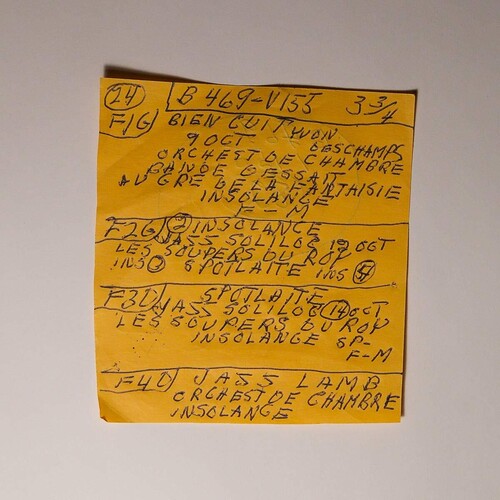 24 B 469-V155 3 3/4
F1G BIEN CUIT NON
9 OCT DESCHAMPS
ORCHEST DE CHAMBRE
BANDE DESSAIT
AU GRE DE LA FANTAISIE
INSOLANGE
F-M
F2G 2 INSOLANGE
JASS SOLILOG 12 OCT
LES SOUPERS DU ROY
INS 3 SPOTLAITE INS 5
F3D SPOTLAITE
JASS SOLILOG 14 OCT
LES SOUPERS DU ROY
INSOLANGE SP-
F-M
F4D JASS LAMB
ORCHEST DE CHAMBRE
INSOLANGE